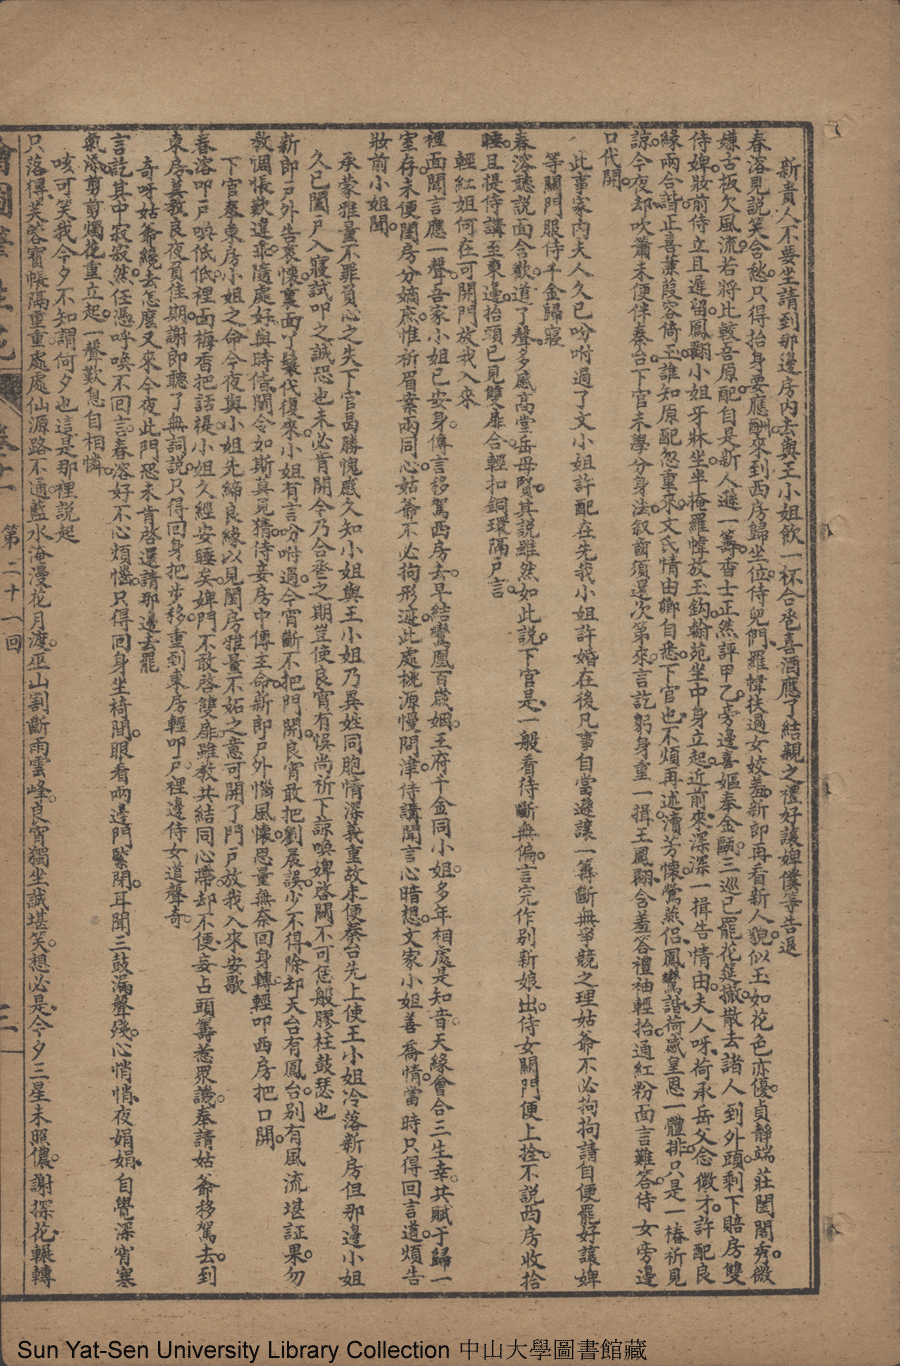 新貴人不要坐請到那邊房內去與王小姐飲一杯合卺喜酒應了結親之禮好讓婢僕等告退
春溶見說笑含愁只得抬身要應酬來到西房歸坐位侍兒們羅幃扶過女姣羞新郎再看新人貌似玉如花色亦優貞靜端莊閨閣秀微
嫌古板欠風流若將比較吾原配自是新人遜一籌香士正然評甲乙旁邊喜嫗奉金甌三巡已罷花筵撤散去諸人到外頭剩下賠房雙
侍婢妝前侍立且遲留鳳翾小姐牙牀坐半掩羅幃放玉鈎翰苑坐中身立起近前來深深一揖告情由夫人呀荷承岳父念微才許配良
緣兩合諧正喜蒹葭容倚玉誰知原配忽重來文氏情由鄉自悉下官也不煩再述瀆芳懷鴛燕侶鳳鸞諧荷感皇恩一體排只是一樁祈見
諒今夜却吹蕭未便伴秦台下官未學分身法叙齒須還次第來言訖躬身重一揖王鳳翾含羞答禮袖輕抬通紅粉面言難答侍女旁邊
口代開
此事家內夫人久已吩咐過了文小姐許配在先我小姐許婚在後凡事自當遜讓一籌斷無爭競之理姑爺不必拘拘請自便罷好讓婢
等關門服侍千金歸寢
春溶聽說面含歡道了聲多感高堂岳母賢其說雖然如此說下官是一般看待斷無偏言完作別新娘出侍女關門便上拴不說西房收拾
睡且提侍講至東邊抬頭已見雙扉合輕扣銅環隔戶言
輕紅姐何在可開門放我入來
裡面聞言應一聲吾家小姐已安身傳言移駕西房去早結鸞鳳百歲姻王府千金同小姐多年相處是知音天緣會合三生幸共賦于歸一
室存未便閨房分嫡庶惟祈眉案兩同心姑爺不必拘形迹此處桃源慢問津侍講聞言心暗想文家小姐善喬情當時只得回言道煩告
妝前小姐聞
承蒙雅量不罪負心之失下官曷勝愧感久知小姐與王小姐乃異姓同胞情深義重故未便秦台先上使王小姐冷落新房但那邊小姐
久已闔戶入寢試叩之誠恐也未必肯開今乃合卺之期豈使良宵有悞尚祈下諒喚婢啓關不可恁般膠柱鼓瑟也
新郎戶外告哀懷裏面丫鬟代復來小姐有言吩咐過今宵斷不把門開良宵敢把劉晨誤少不得除却天台有鳳台別有風流堪証果勿
教惆悵歎違乖隨處好與時偕閫令如斯莫見猜侍妾房中傳主命新郎戶外惱風懷思量無奈回身轉輕叩西房把口開
下官奉東房小姐之命今夜與小姐先締良緣以見閨房雅量不妬之意可開了門戶放我入來安歇
春溶叩戶喚低低裡面梅香把話禔小姐久經安睡矣婢門不敢啓雙扉雖教共結同心帶却不便妄占頭籌惹眾譏奉請姑爺移駕去到
東房莫教良夜負佳期謝郎聽了無詞說只得回身把步移重到東房輕叩戶裡邊侍女道聲奇
奇呀姑爺纔去怎麽又來今夜此門恐未肯啓還請那邊去罷
言訖其中寂寂然任憑呼喚不回言春溶好不心煩惱只得回身坐椅間眼看兩邊門緊閉耳聞三鼓漏聲殘心悄悄夜娟娟自覺深宵寒
氣添剪剪燭花重立起一聲歎息自相憐
咳可笑我今夕不知謂何夕也這是那裡說起
只落得芙蓉寶帳隔重重處處仙源路不通藍水淹漫花月渡巫山割斷雨雲峰良宵獨坐誠堪笑想必是今夕三星未照儂謝探花輾轉
第二十一回
三
Sun Yat-Sen University Library Collection 中山大學圖書館藏